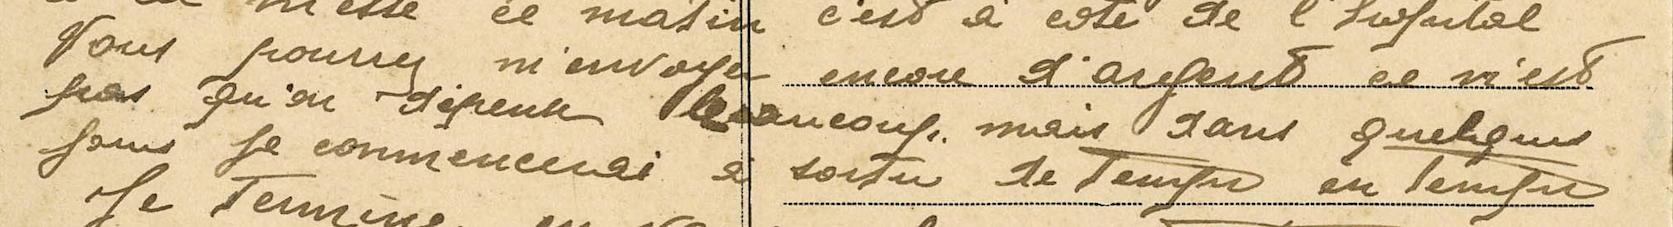 messe ce matin c'est à coté de l'hopital
Vous pourrez m'envoyer encore d'argent ce n'est
pas qu'on dépense beaucoup. mais dans quelques
jours je commencerai à sortir de temps en temps
Je termine en